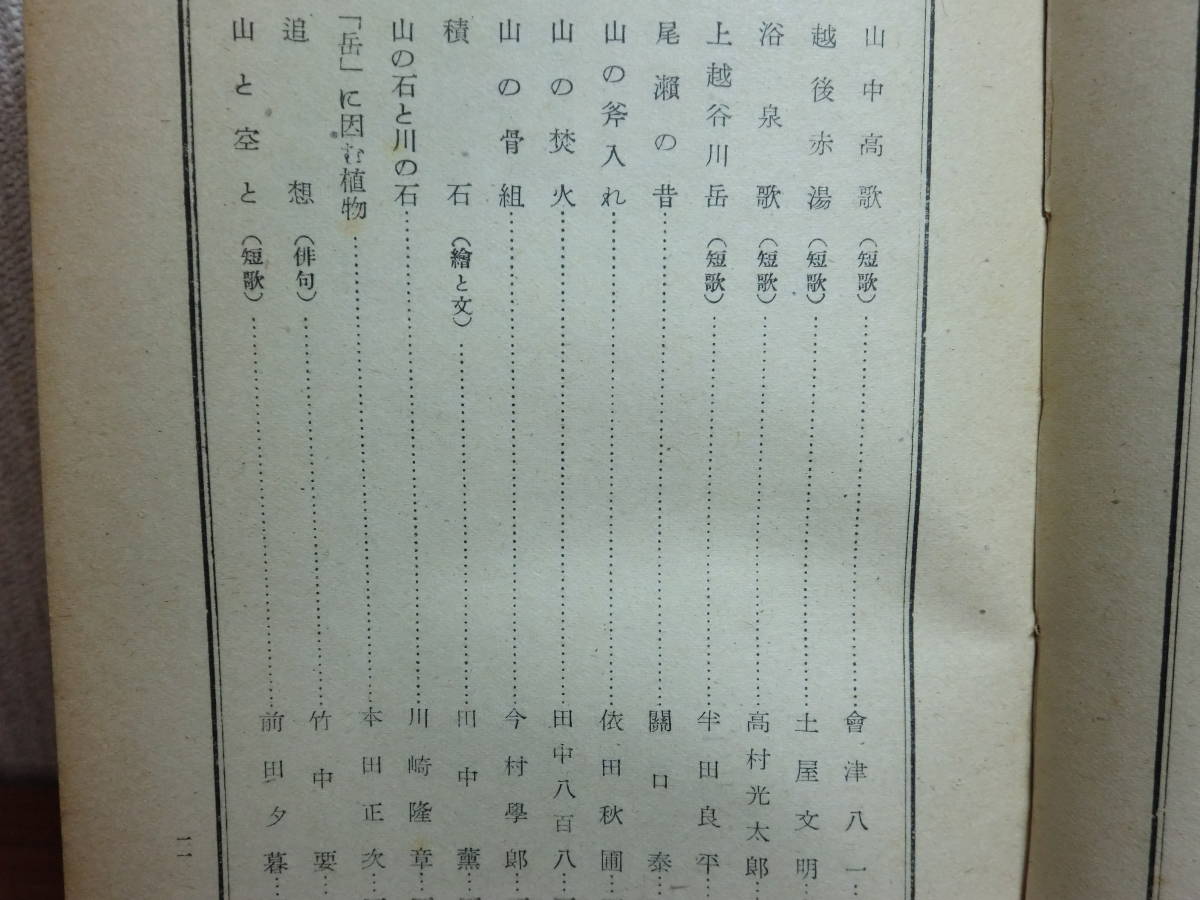 山中高歌（短歌）……會津八一…
越後赤湯（短歌）……土屋文明…
浴泉歌（短歌）……高村光太郎…
上越谷川岳（短歌）……半田良平…
尾瀬の昔……關口泰…
山の斧入れ……依田秋圃…
山の焚火……田中八百八…
山の骨組……今村學郎…
積石（繪と文）……田中薫…
山の石と川の石……川崎隆章…
「岳」に因む植物……本田正次…
追想（俳句）……竹中要…
山と空と（短歌）……前田夕暮…
二